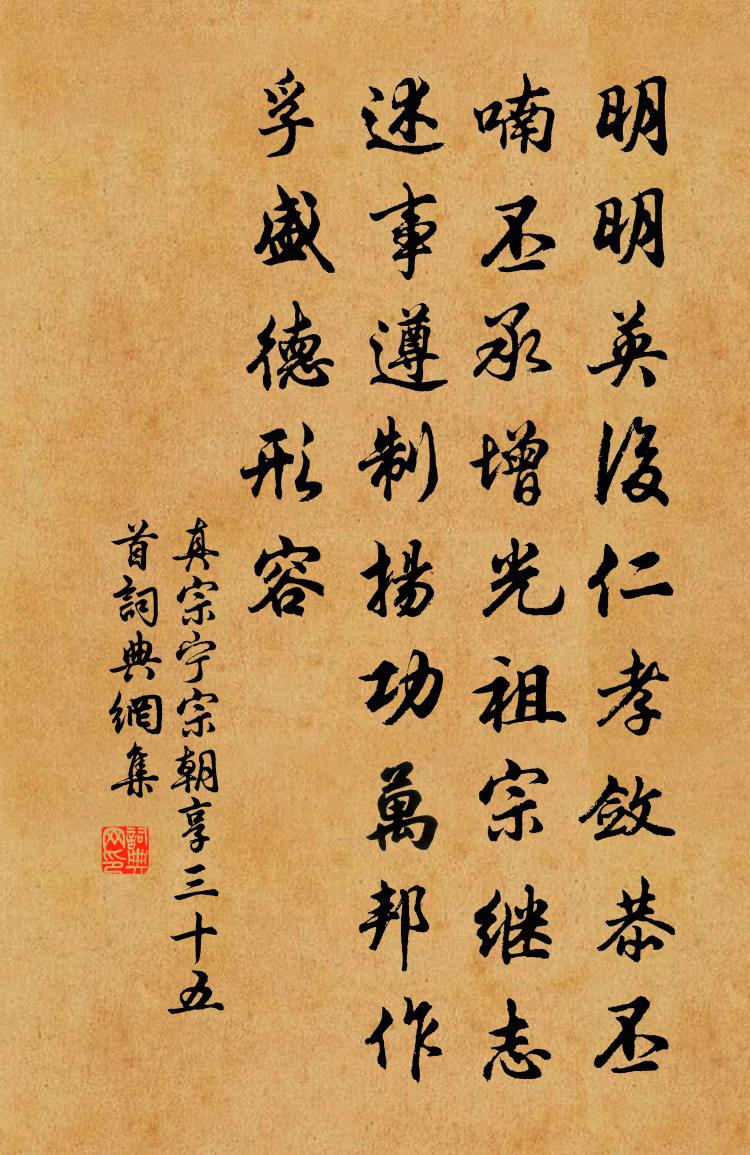 明明英後仁孝敛恭丕
喃丕承增光祖宗继志
述事遵制揚功萬邦作
孚盛德形容
真宗宁宗朝享三十五
首詞典網集
詞典
网印